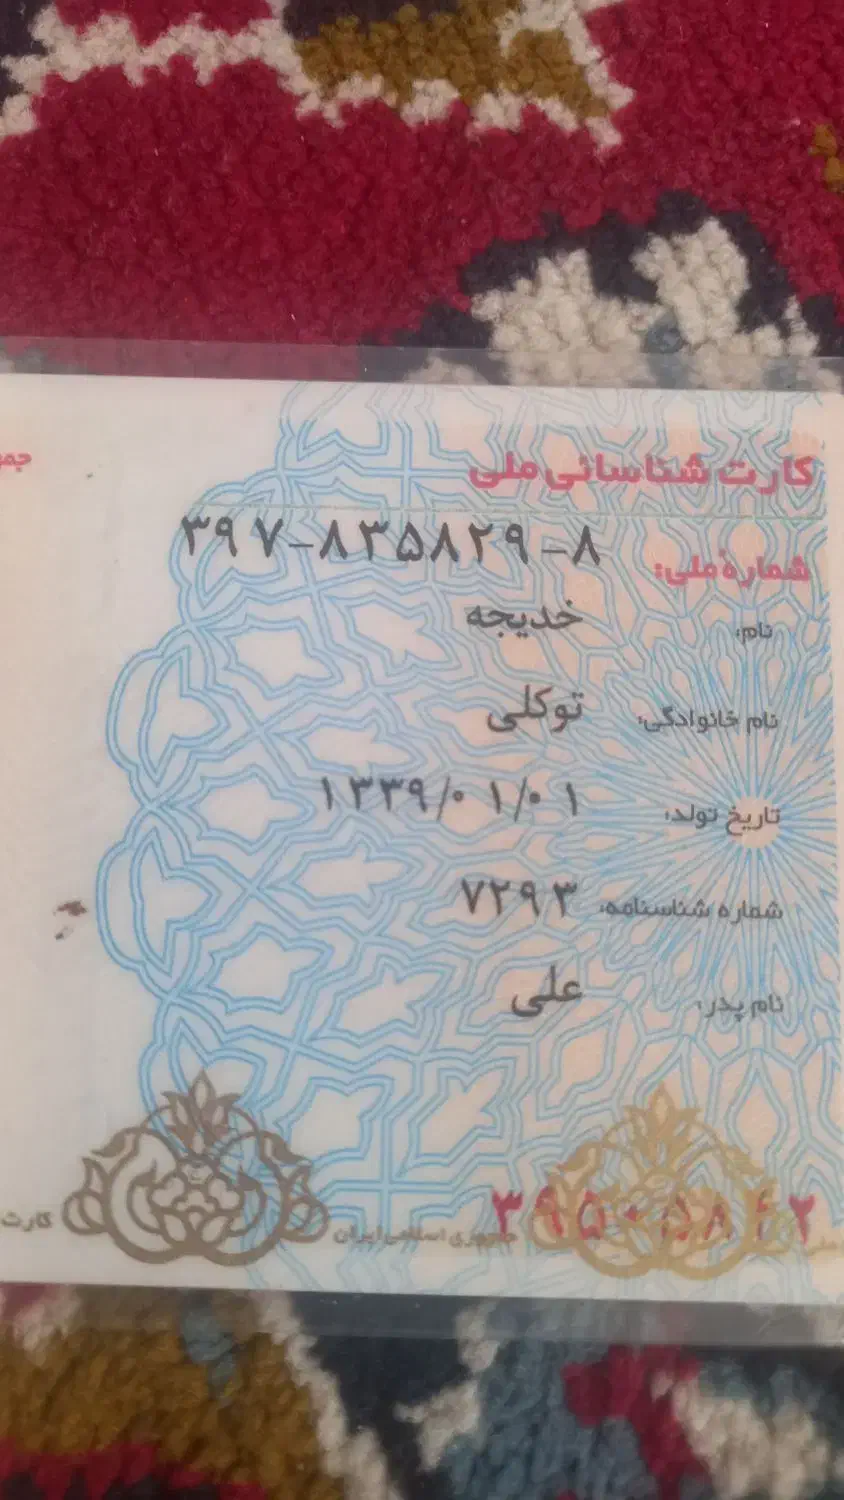 جمهو
کارت شناسائی ملی
شمارهٔ ملی: ۳۹۷-۸۳۵۸۲۹-۸
نام: خدیجه
نام خانوادگی: توکلی
تاریخ تولد: ۱۳۳۹/۰۱/۰۱
شماره شناسنامه: ۷۲۹۳
نام پدر: علی
جمهوری اسلامی ایران کارت